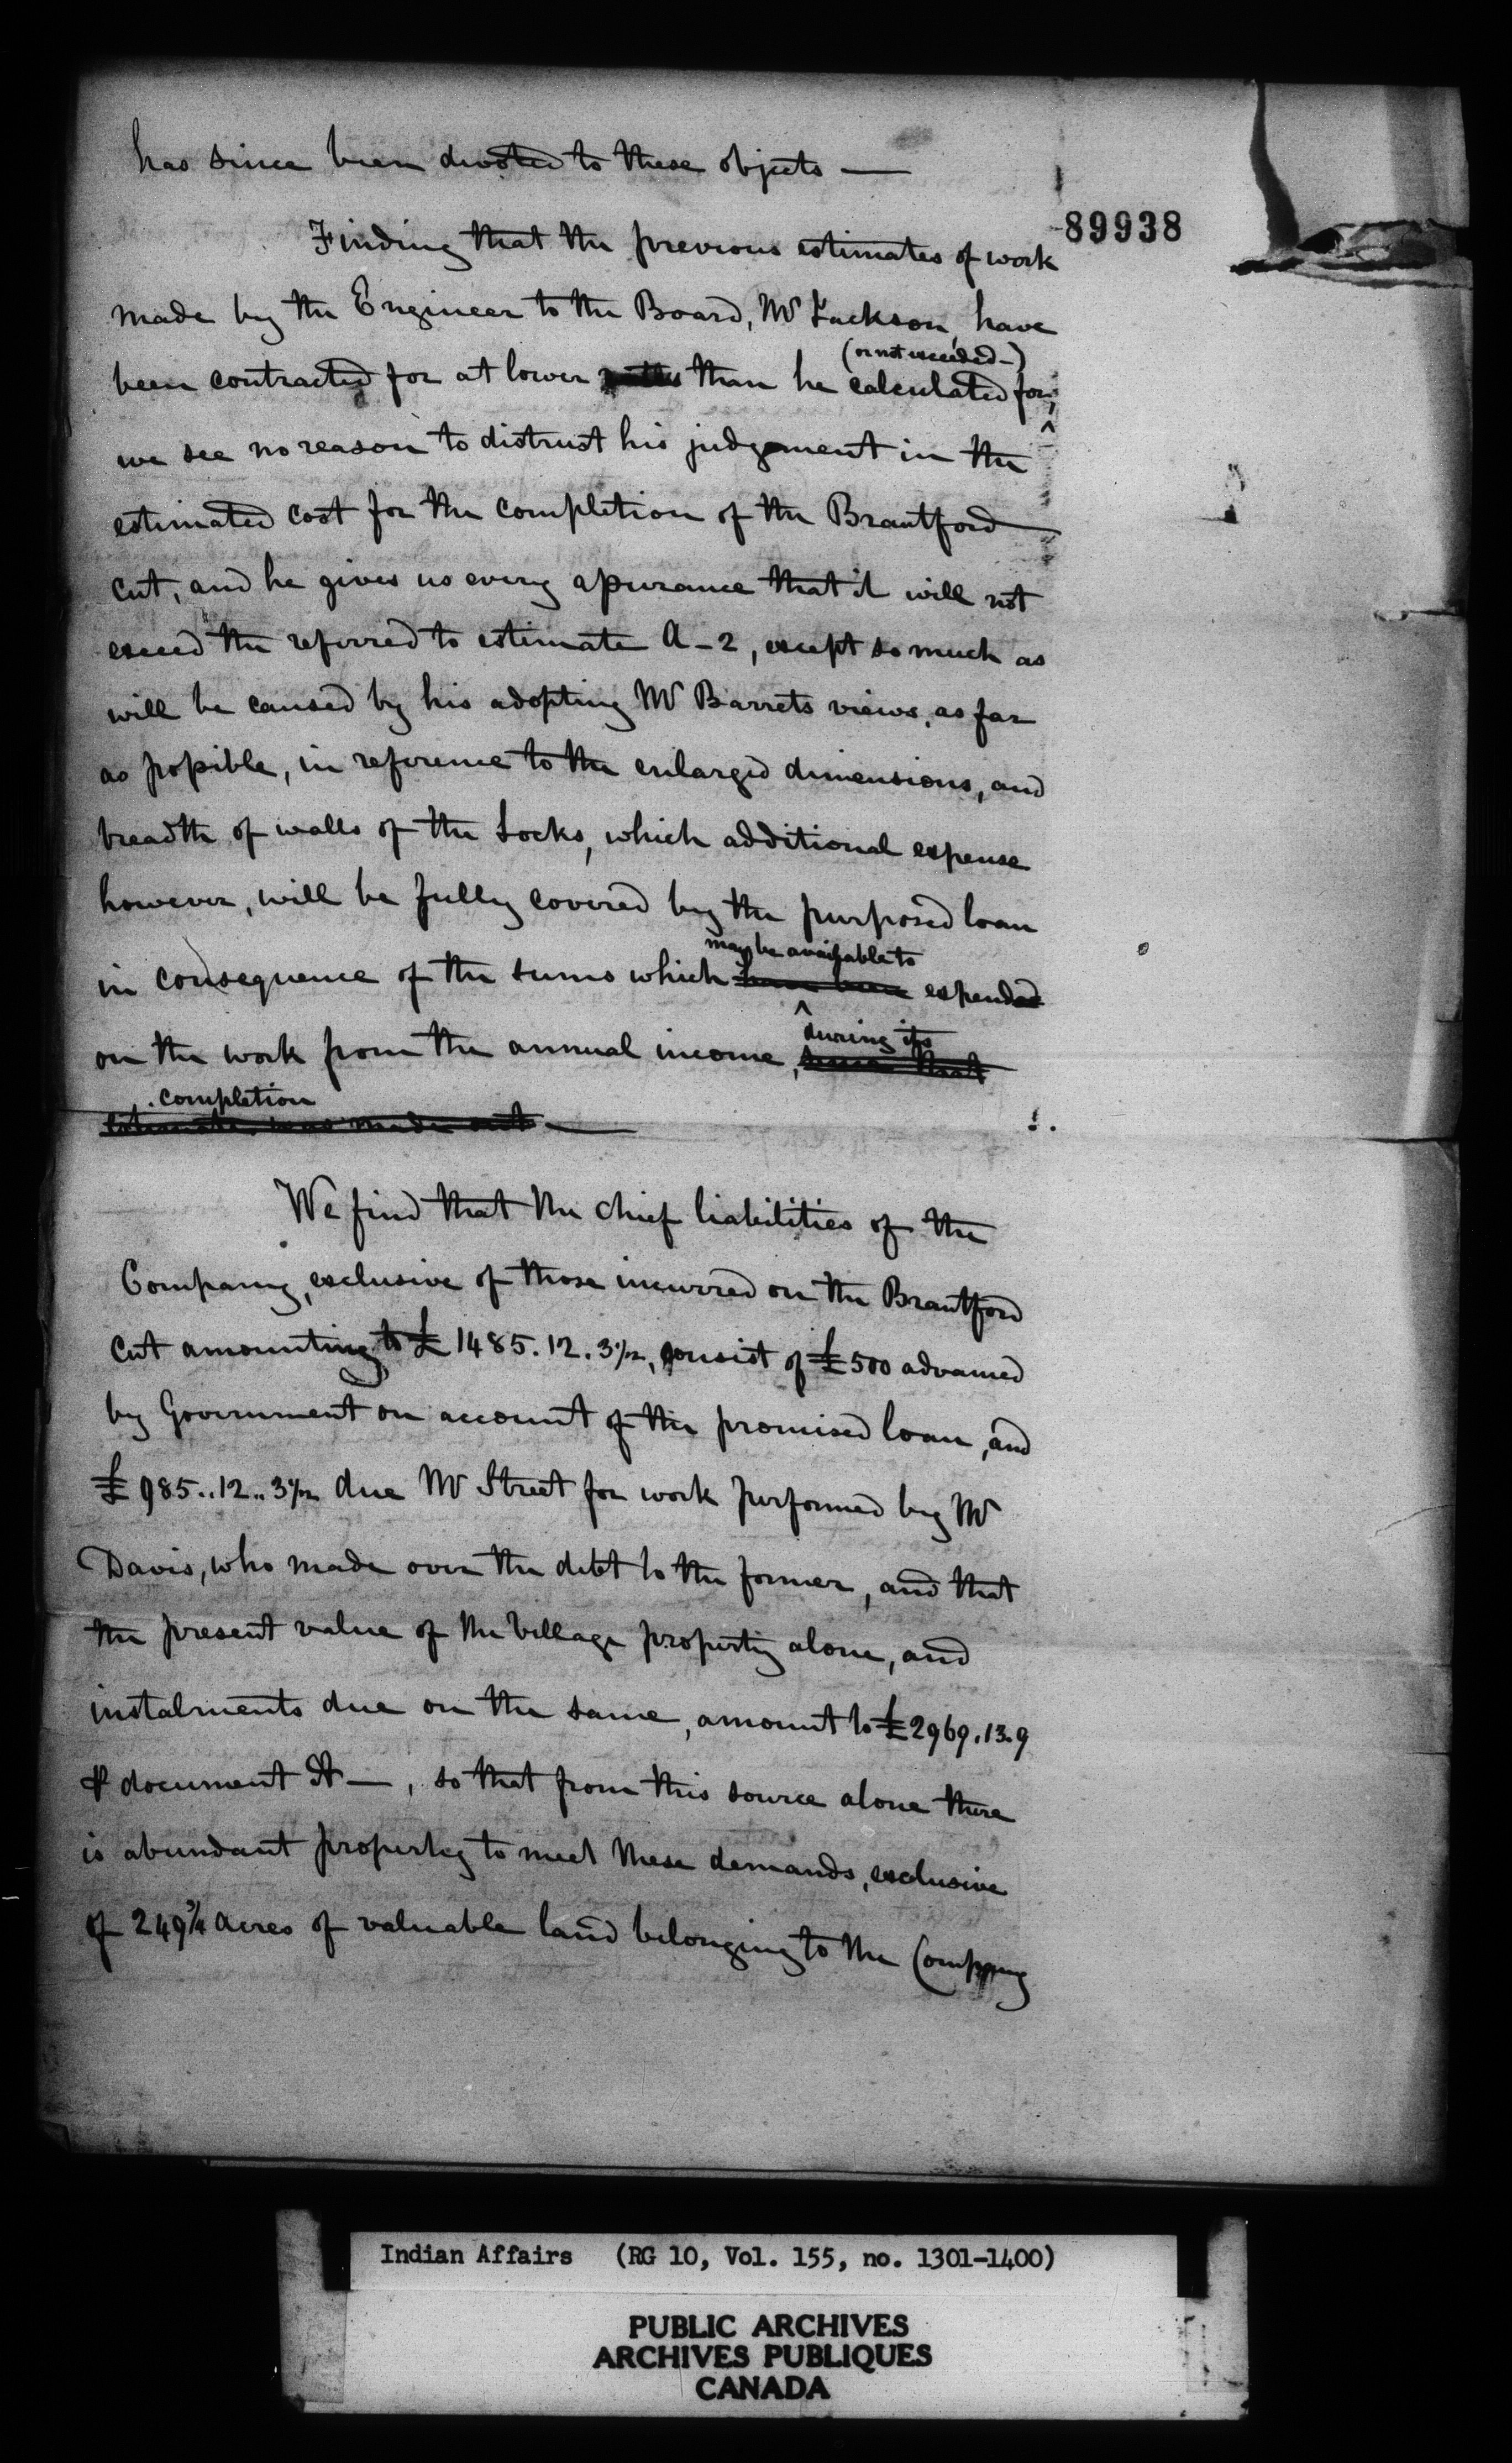 has since been devoted to these objects —
89938
Finding that the previous estimates of work
made by the Engineer to the Board, Mr Jackson, have
(or not exceeded —)
been contracted for at lower rates than he calculated for,
we see no reason to distrust his judgement in the
estimated cost for the completion of the Brantford
Cut, and he gives us every assurance that it will not
exceed the referred to estimate A-2, except so much as
will be caused by his adopting Mr Barrets views, as far
as possible, in reference to the enlarged dimensions, and
breadth of walls of the Locks, which additional expense
however, will be fully covered by the purposed loan
may be available to
in consequence of the sums which have been expended
during its
on the work from the annual income, since that
completion
estimate was made out —
We find that the chief liabilities of the
Company, exclusive of those incurred on the Brantford
Cut amounting to £1485.12.3½, consist of £500 advanced
by Government on account of the promised loan, and
£985..12..3½ due Mr Street for work performed by Mr
Davis, who made over the debt to the former, and that
the present value of the Village property alone, and
instalments due on the same, amount to £2969.13.9
⅌ document A —, so that from this source alone there
is abundant property to meet these demands, exclusive
of 249¾ Acres of valuable land belonging to the Company
Indian Affairs (RG 10, Vol. 155, no. 1301-1400)
PUBLIC ARCHIVES
ARCHIVES PUBLIQUES
CANADA